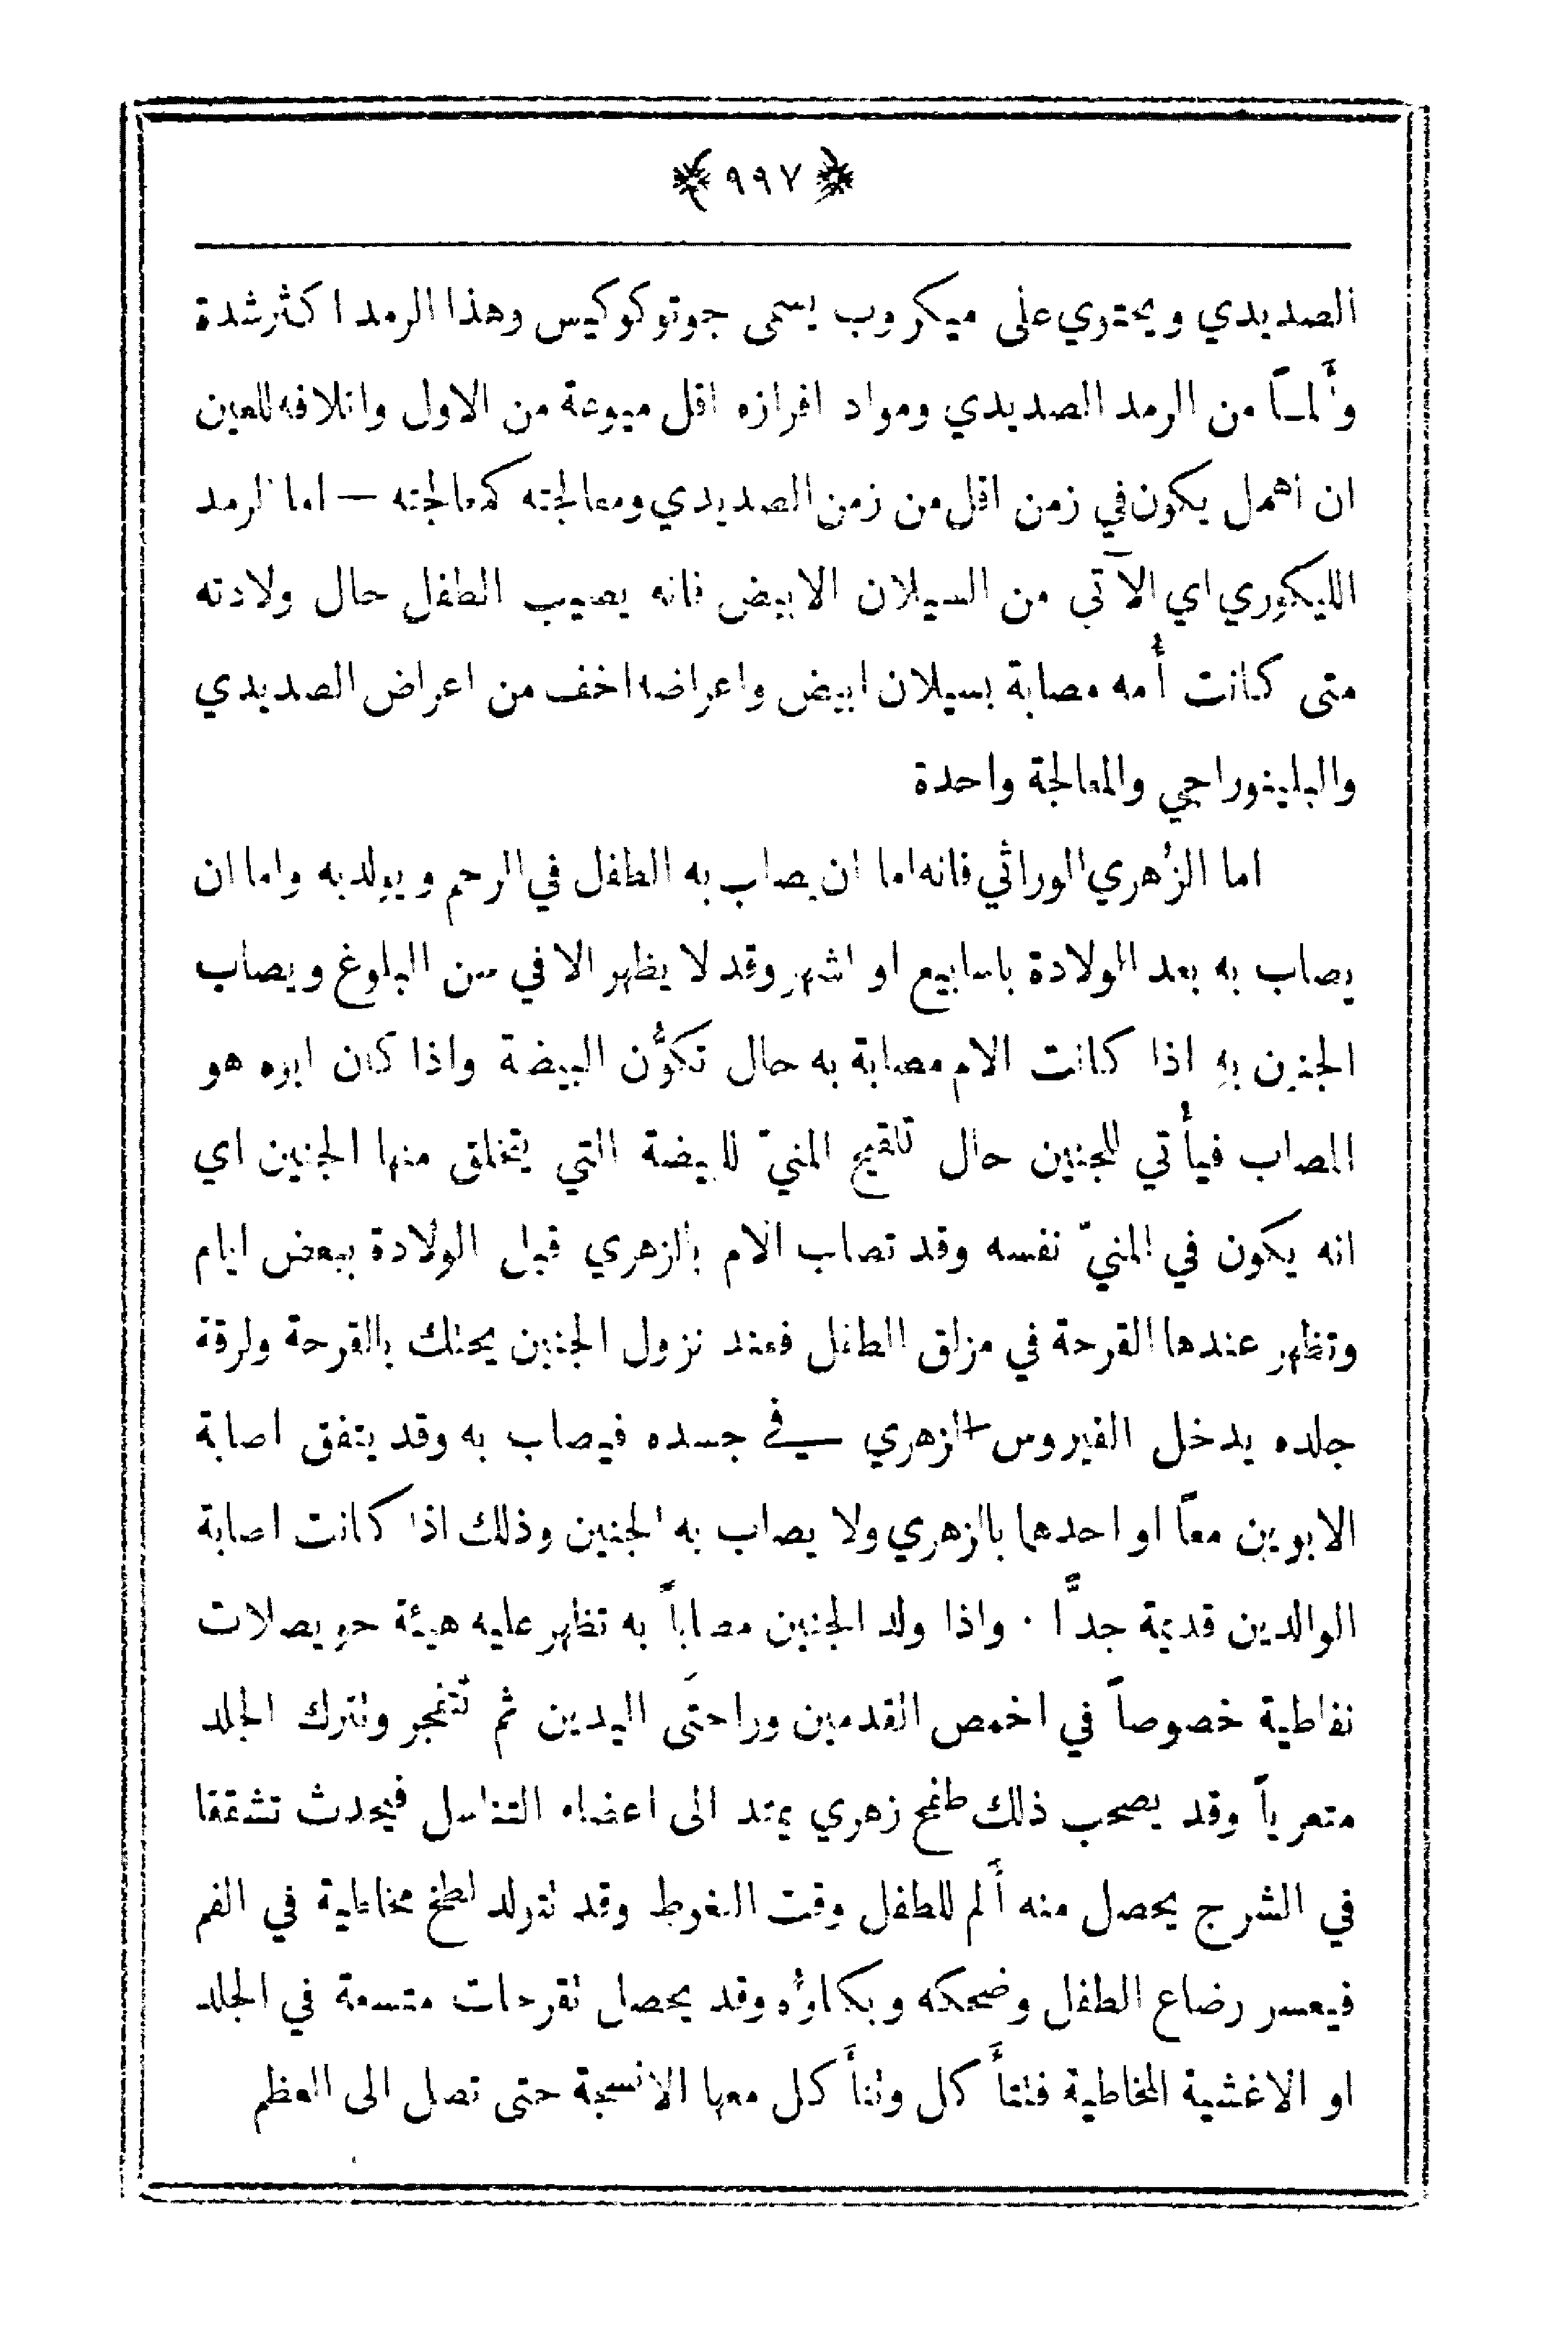 ﴿ ٩٩٧ ﴾
الصديدي ويحتوي على ميكروب يسمى جونوكوكيس وهذا الرمد اكثر شدة
وأَلمــاً من الرمد الصديدي ومواد افرازه اقل ميوعة من الاول واتلافه للعين
ان اهمل يكون في زمن اقل من زمن الصديدي ومعالجته كمعالجته — اما الرمد
الليكوري اي الآتي من السيلان الابيض فانه يصيب الطفل حال ولادته
متى كانت أُمه مصابة بسيلان ابيض واعراضه اخف من اعراض الصديدي
والبلينوراجي والمعالجة واحدة
اما الزُهري الوراثي فانه اما ان يصاب به الطفل في الرحم ويولد به واما ان
يصاب به بعد الولادة باسابيع او اشهر وقد لا يظهر الا في سن البلوغ ويصاب
الجنين بهِ اذا كانت الام مصابة به حال تكوُّن البيضة واذا كان ابوه هو
المصاب فيأتي للجنين حال تلقيح المنيّ للبيضة التي يتخلق منها الجنين اي
انه يكون في المنيّ نفسه وقد تصاب الام بالزهري قبل الولادة ببعض ايام
وتظهر عندها القرحة في مزلق الطفل فعند نزول الجنين يحتك بالقرحة ولرقة
جلده يدخل الفيروس الزهري في جسده فيصاب به وقد يتفق اصابة
الابوين معاً او احدهما بالزهري ولا يصاب به الجنين وذلك اذا كانت اصابة
الوالدين قديمة جدًّا . واذا ولد الجنين مصاباً به تظهر عليه هيئة حويصلات
نفاطية خصوصاً في اخمص القدمين وراحتَى اليدين ثم تنفجر وتترك الجلد
متعرياً وقد يصحب ذلك طفح زهري يمتد الى اعضاء التناسل فيحدث تشققا
في الشرج يحصل منه أَلم للطفل وقت التغوط وقد تتولد لطخ مخاطية في الفم
فيعسر رضاع الطفل وضحكه وبكاؤُه وقد يحصل تقرحات متسعة في الجلد
او الاغشية المخاطية فتتأَكل وتتأَكل معها الانسجة حتى تصل الى العظم